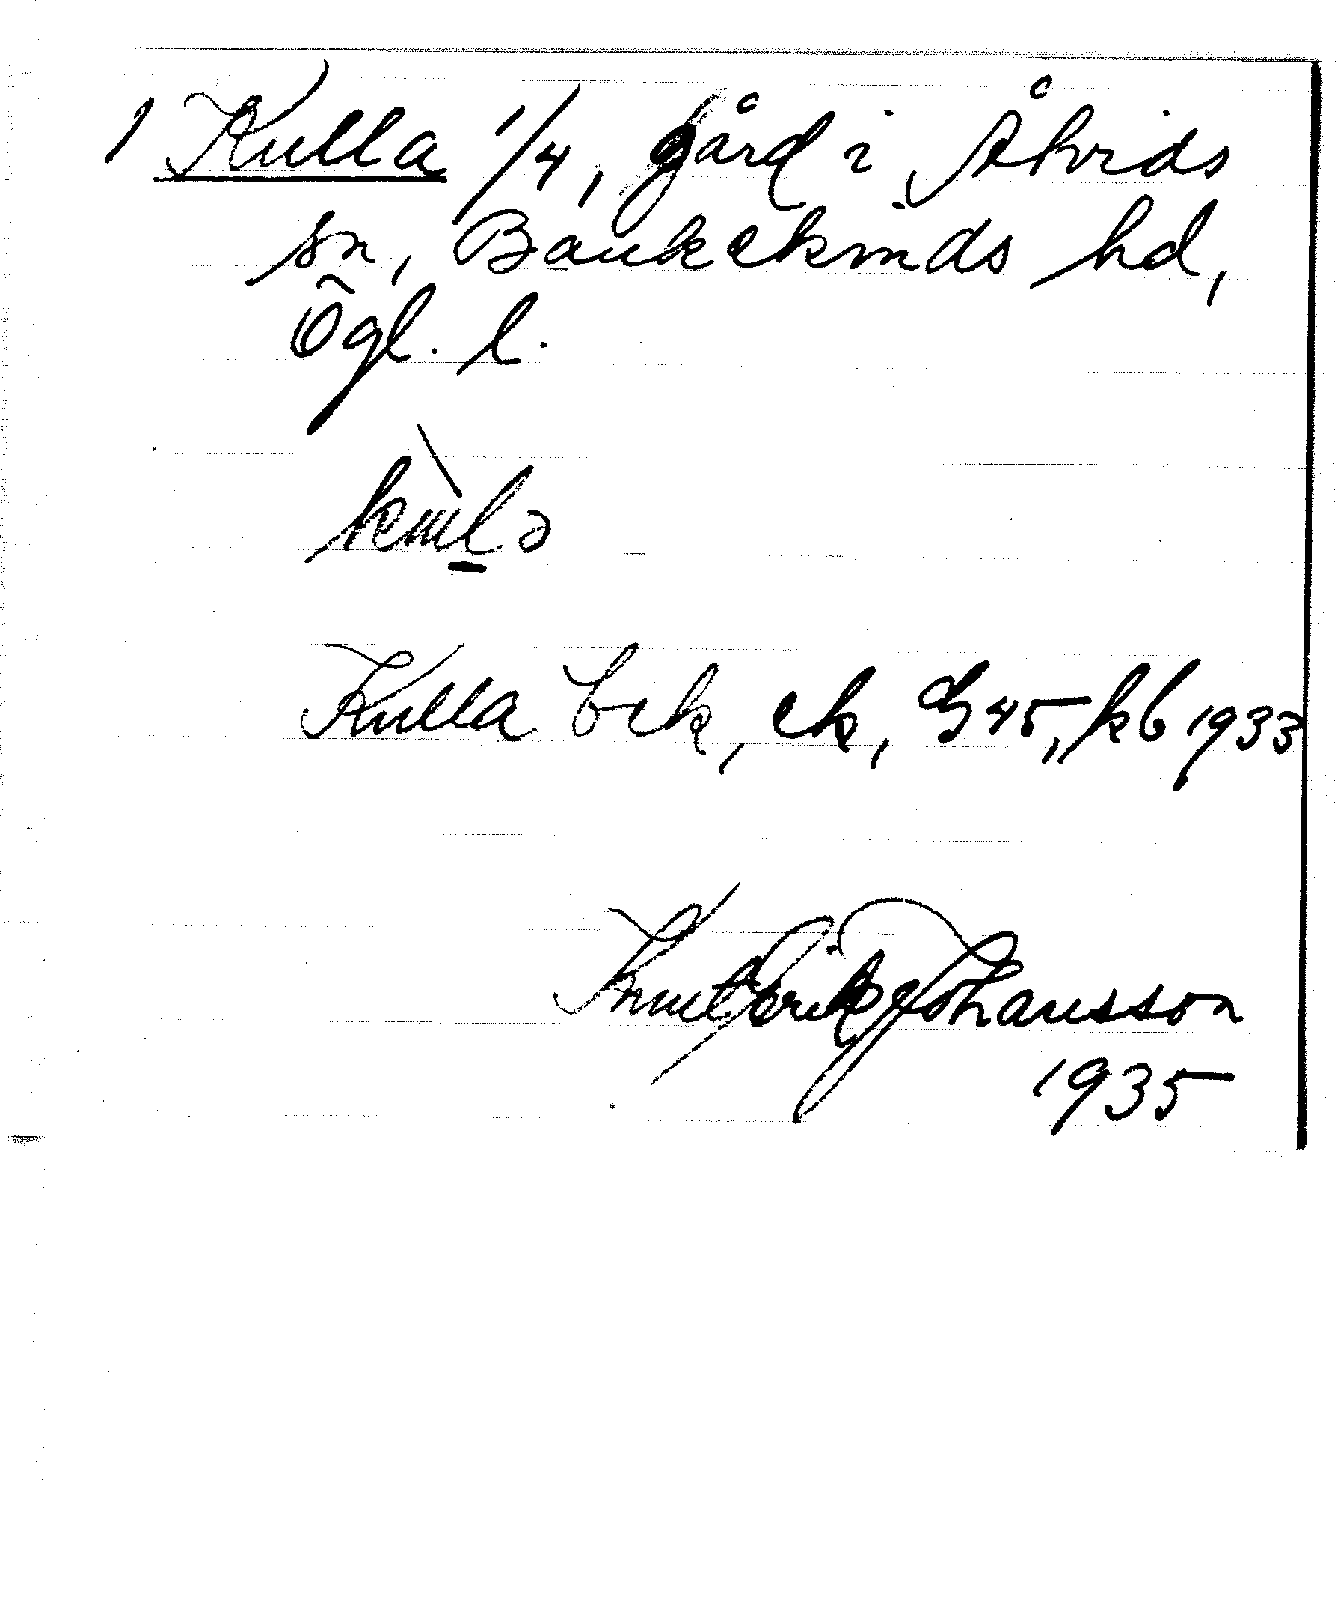 1 Kulla 1/4, gård i Åtvids
sn, Bankekinds hd,
Ögl. l.
Kulla bek, ek, G 45, kb 1933
Knut Erik Johansson
1935